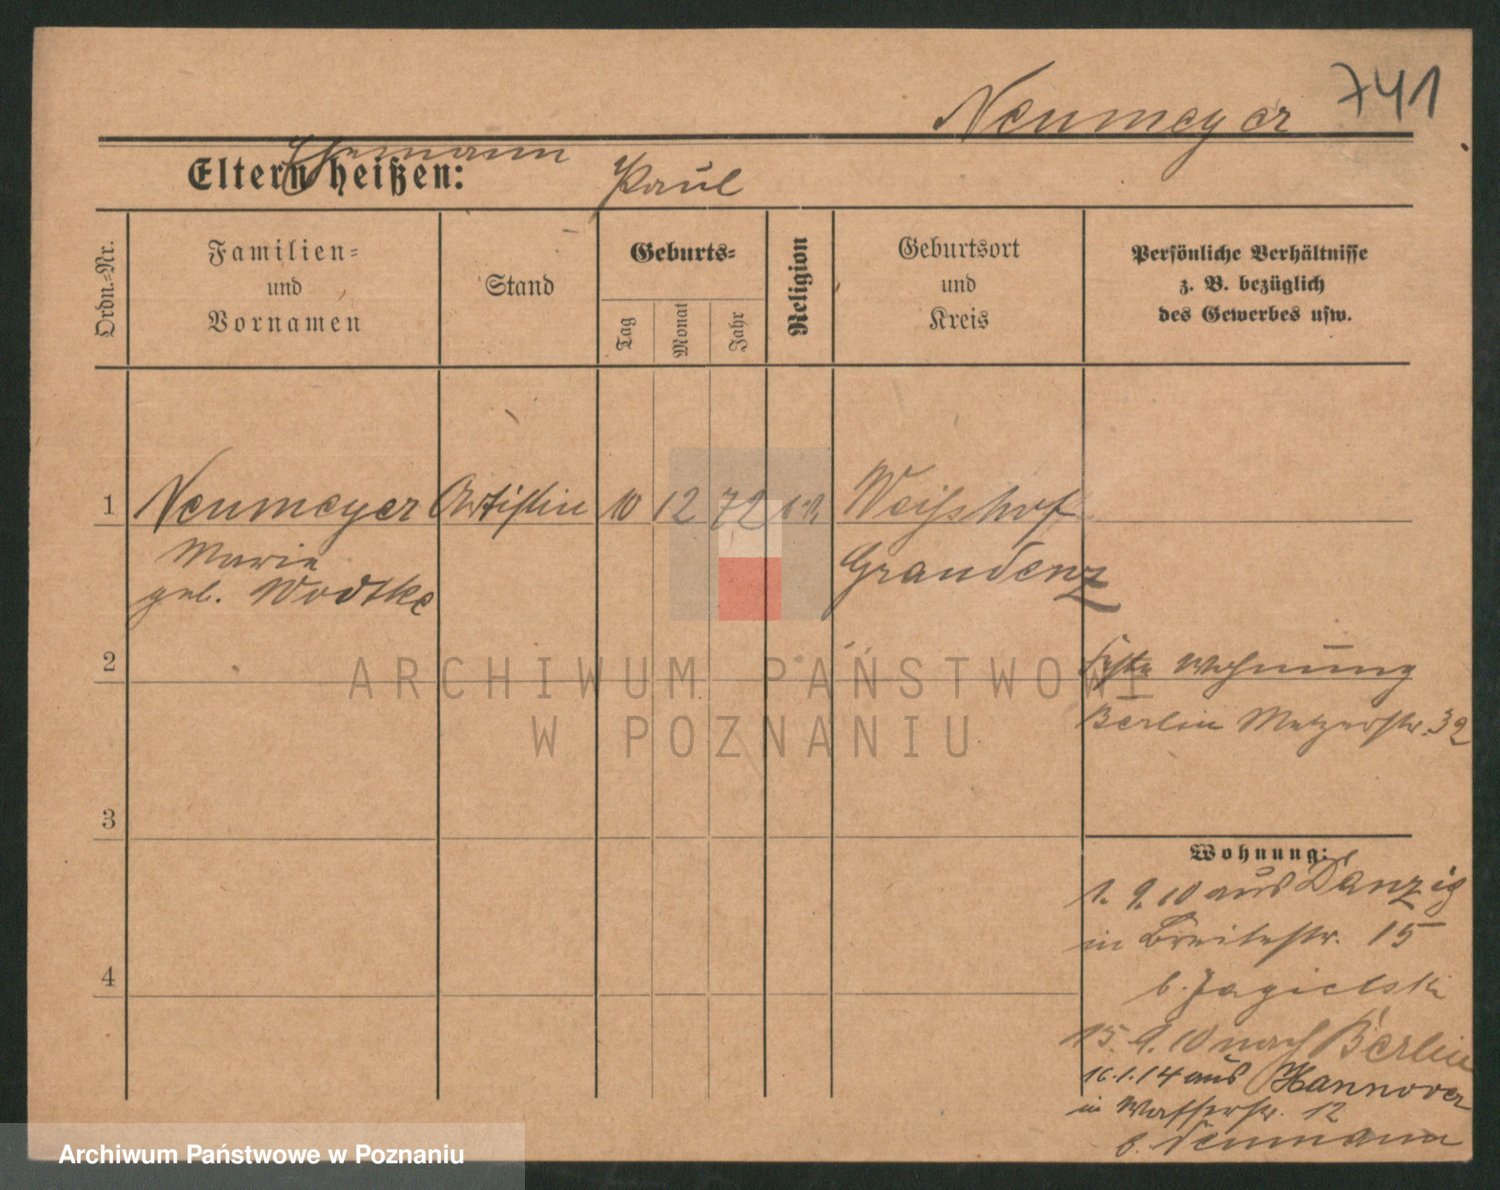 741
Neumeyer
Ehemann
Eltern heißen: Paul
Ordn.-Nr.
Familien-
und
Vornamen
Stand
Geburts-
Tag
Monat
Jahr
Religion
Geburtsort
und
Kreis
Persönliche Verhältnisse
z. B. bezüglich
des Gewerbes usw.
1 Neumeyer Artistin 10 12 72 Weißhof
Marie Graudenz
geb. Wodtke
2
feste Wohnung
Berlin Metzerstr. 32
3
Wohnung:
1. 9. 10 aus Danzig
in Breitestr. 15
b. Jagielski
4
15. 9. 10 nach Berlin
16.1.14 aus Hannover
in Wasserstr. 12
b. Neumann
ARCHIWUM PAŃSTWOWE
W POZNANIU
Archiwum Państwowe w Poznaniu